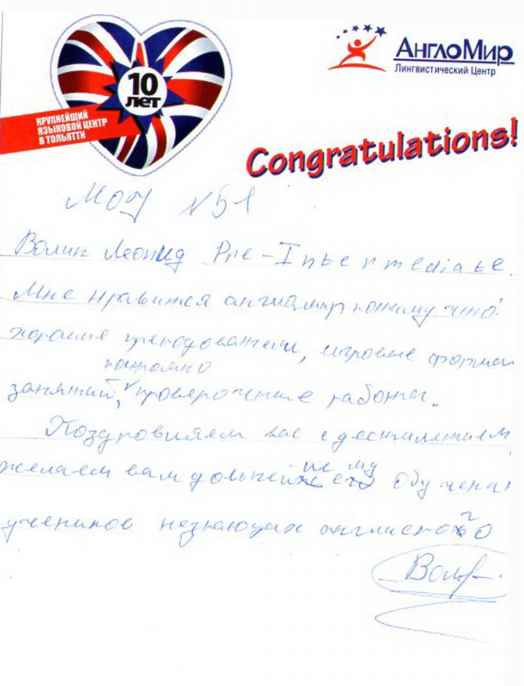 10
ЛЕТ
КРУПНЕЙШИЙ
ЯЗЫКОВОЙ ЦЕНТР
В ТОЛЬЯТТИ
АнглоМир
Лингвистический Центр
Congratulations!
МОУ №51
Волик Леонид Pre-Intermediate.
Мне нравится англомир потому что
хорошие преподаватели, игровые формы
занятий, проверочные работы.
Поздровляем вас с десятилетием,
желаем вам
учеников незнающих англиского